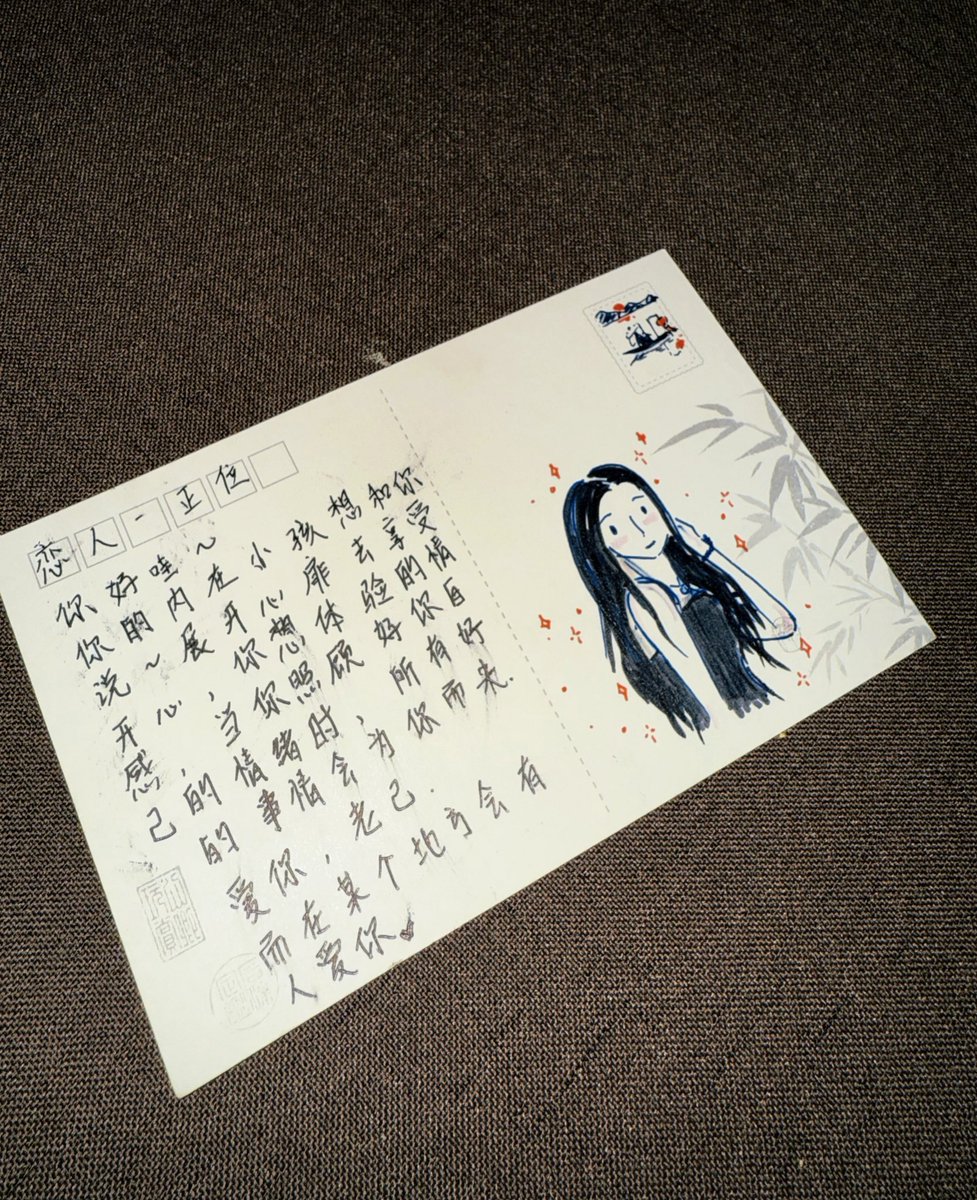 恋人一正位
你好哇~
你的内在小孩想和你
说~展开心扉去享受
开心，你想体验的情
感，当你照顾好你自
己的情绪时，所有好
的事情会为你而来.
爱你，老己.
而在某个地方会有
人爱你♥